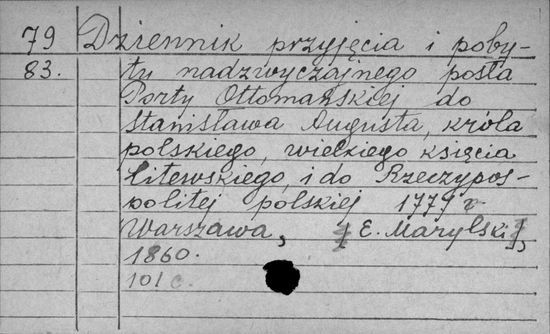 79 Dziennik przyjęcia i poby-
83. tu nadzwyczajnego posła
Porty Ottomańskiej do
Stanisława Augusta, króla
polskiego, wielkiego księcia
litewskiego, i do Rzeczypos-
politej polskiej 1779 r
Warszawa, [E. Marylski],
1860.
101 c.